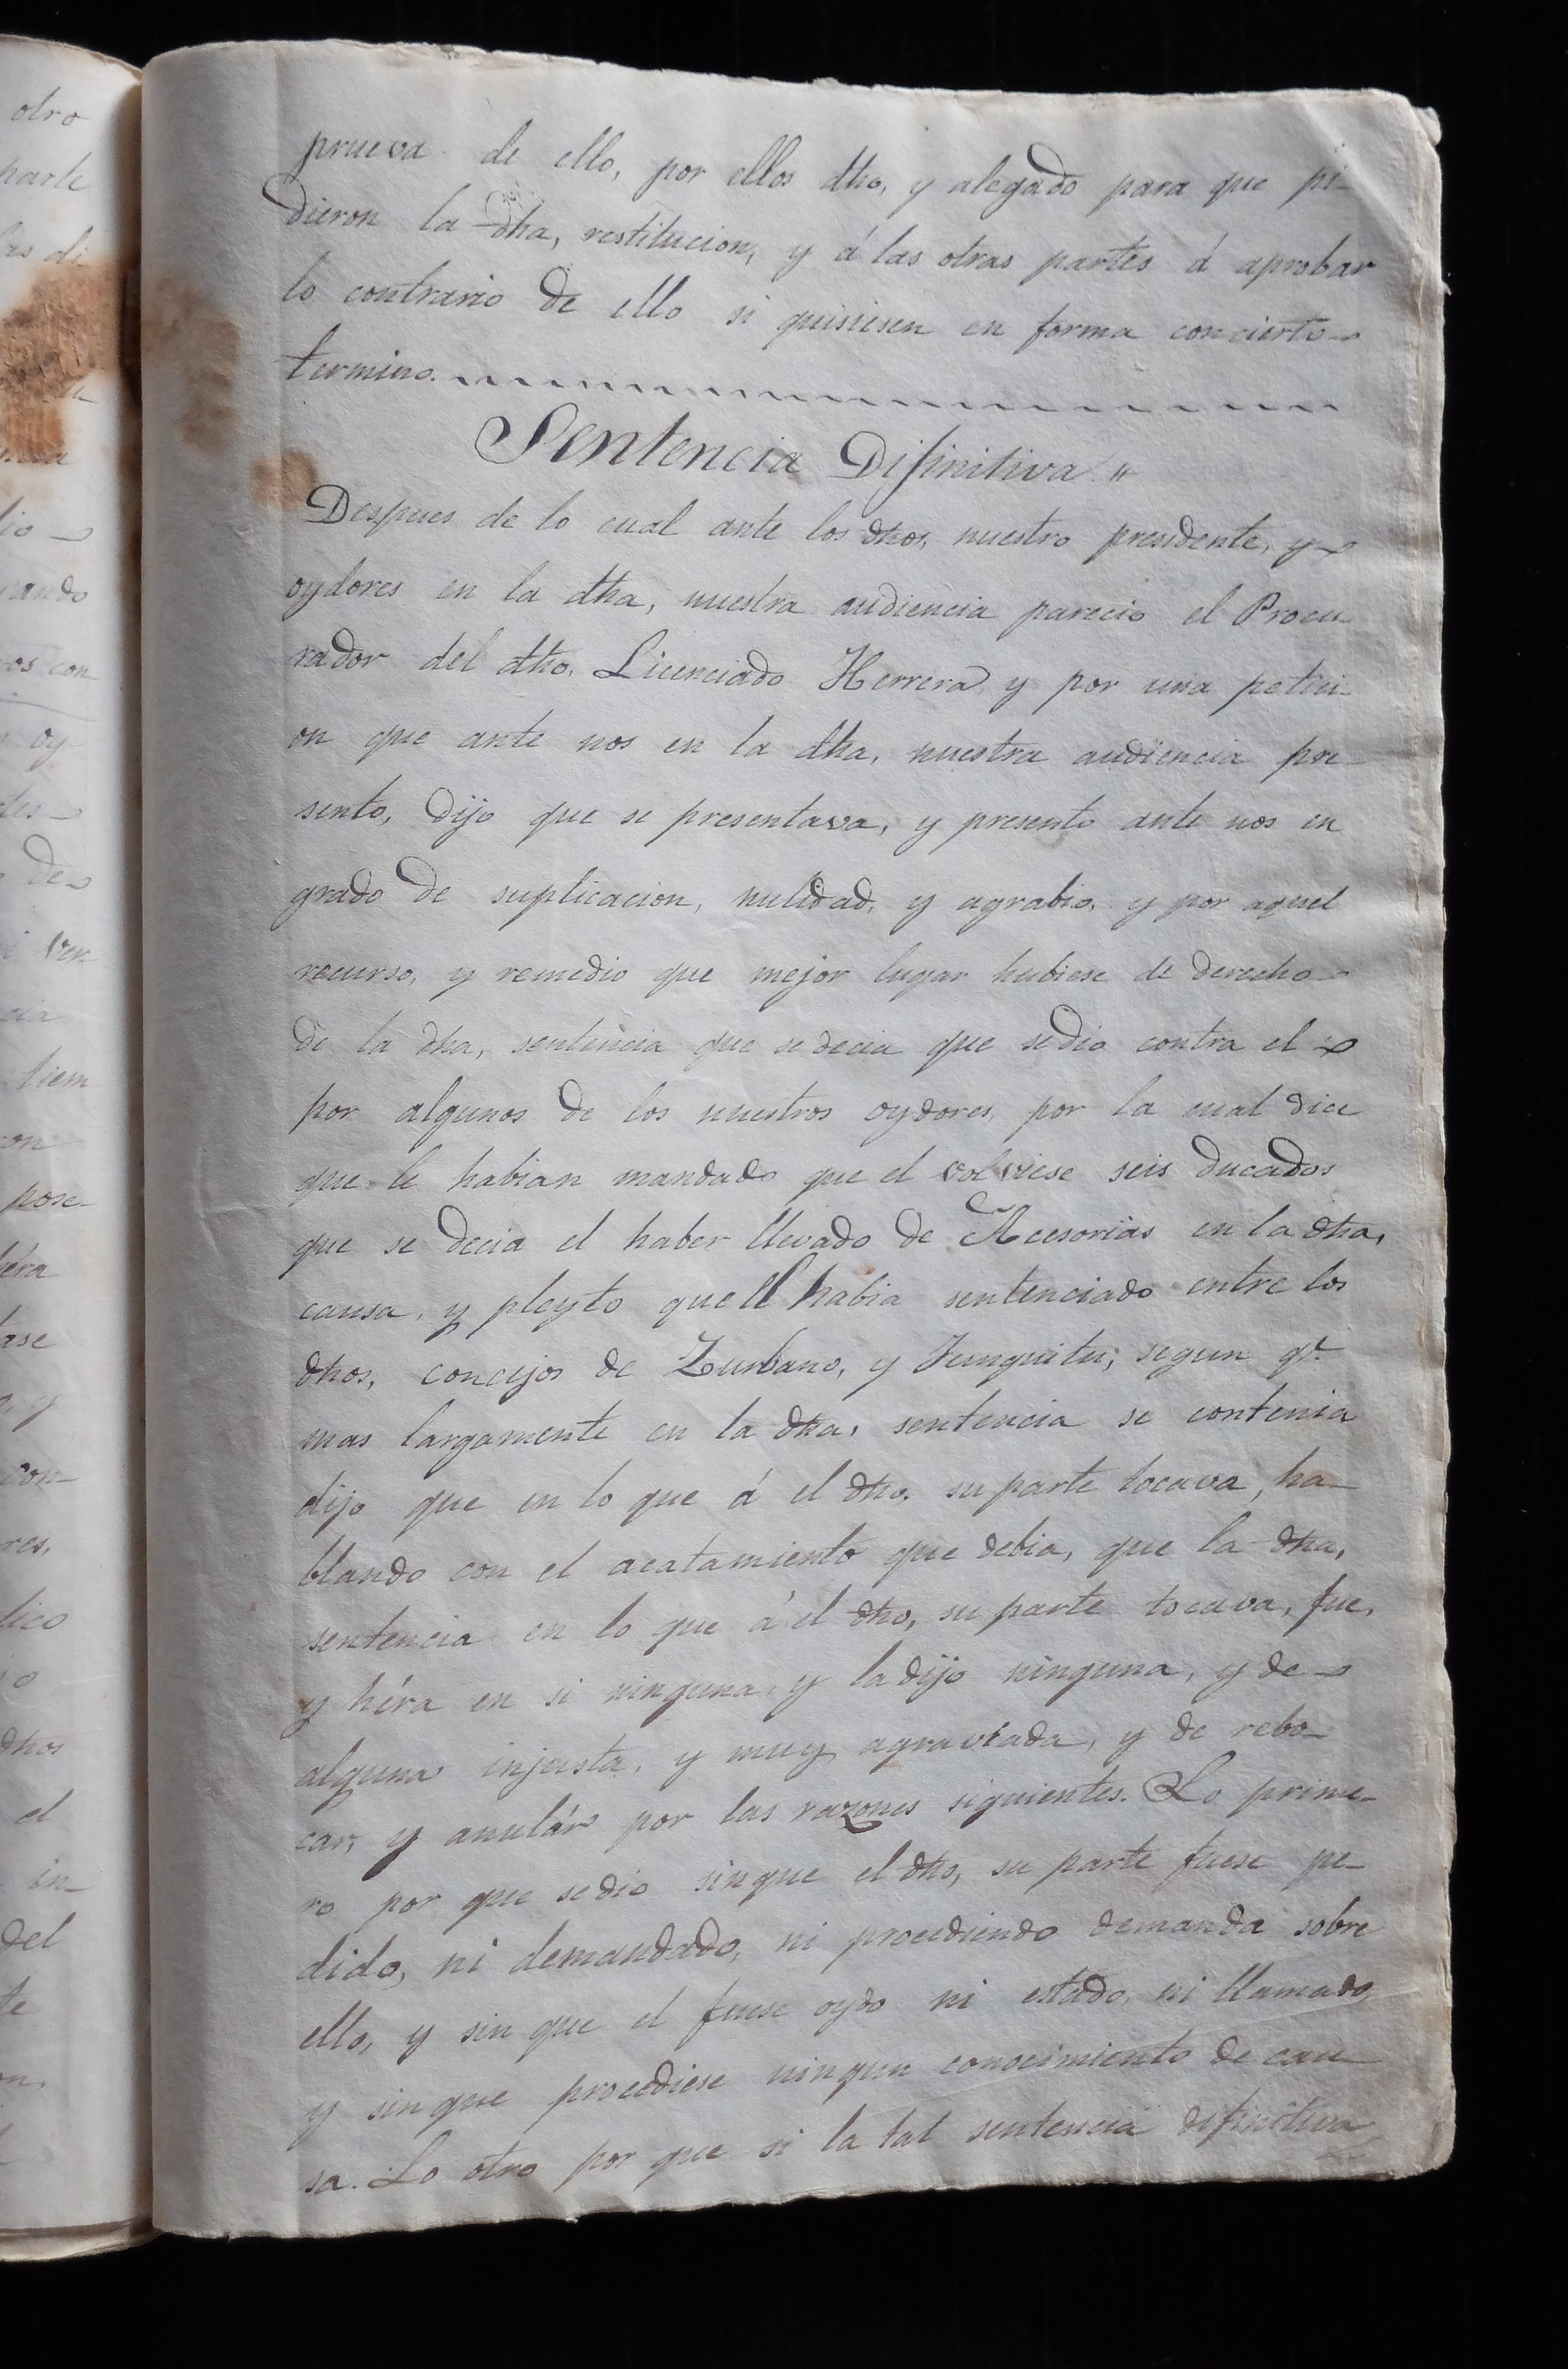 prueva de ello, por ellos dho, y alegado para que pi-
dieron la dha, restitucion, y á las otras partes á aprobar
lo contrario de ello si quisiesen en forma concierto
termino.
Sentencia Difinitiva. "
Despues de lo cual ante los dhos, nuestro presidente, y
oydores en la dha, nuestra audiencia parecio el Procu
rador del dho. Licenciado Herrera, y por una petici-
on que ante nos en la dha, nuestra audiencia pre-
sento, dijo que se presentava, y presento ante nos en
grado de suplicacion, nulidad, y agrabio, y por aquel
recurso, y remedio que mejor lugar hubiese de derecho
de la dha, sentencia que se decia que se dio contra el
por algunos de los nuestros oydores, por la cual dice
que le habian mandado que el volviese seis ducados
que se decia el haber llevado de Acesorias en la dha,
causa, y pleyto que el habia sentenciado entre los
dhos, concejos de Zurbano, y Junguitu; segun qe.
mas largamente en la dha, sentencia se contenia
dijo que en lo que á el dho. su parte tocava, ha-
blando con el acatamiento que debia, que la dha,
sentencia en lo que á el dho, su parte tocava, fue,
y héra en si ninguna, y la dijo ninguna, y de
alguna injusta, y muy agraviada, y de rebo-
car, y anulár por las razones siguientes. Lo prime-
ro por que se dio sin que el dho, su parte fuese pe-
dido, ni demandado, ni procediendo demanda sobre
ello, y sin que el fuese oydo ni estado, ni llamado,
y sin que procediese ningun conocimiento de cau-
sa. Lo otro por que si la tal sentencia difinitiva